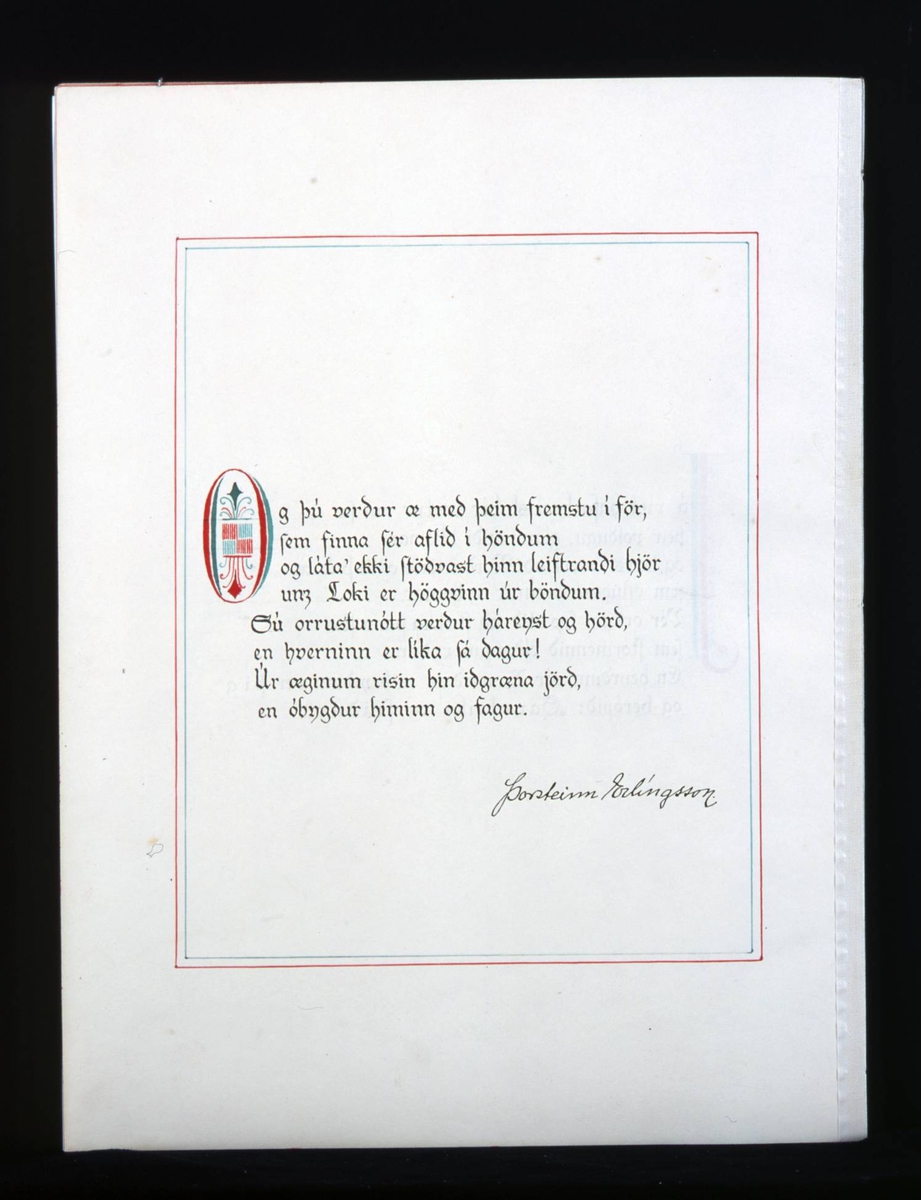 Og þú verdur æ med þeim fremstu í för,
sem finna sér aflid í höndum
og láta' ekki stödvast hinn leiftrandi hjör
unz Loki er höggvinn úr böndum.
Sú orrustunótt verdur háreyst og hörd,
en hverninn er líka sá dagur!
Úr æginum risin hin idgræna jörd,
en óbygdur himinn og fagur.
Þorsteinn Erlíngsson